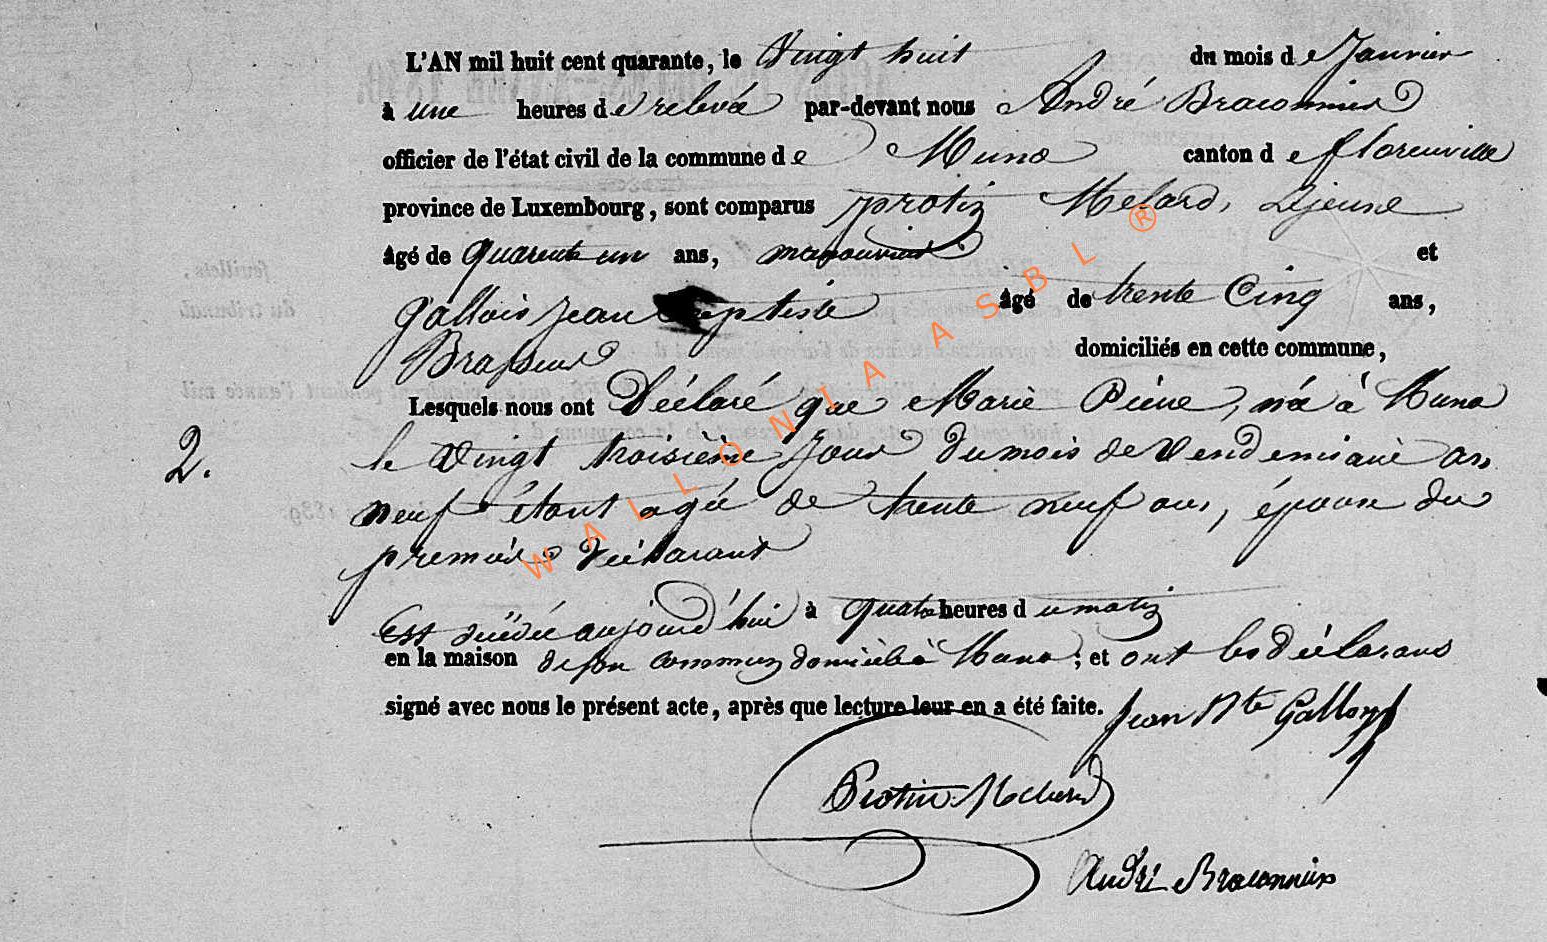 L'AN mil huit cent quarante, le Vingt huit du mois de Janvier
à une heures de relevée par-devant nous André Braconnier
officier de l'état civil de la commune de Muno canton de florenville
province de Luxembourg, sont comparus protin Melard, Lejeune
âgé de quarente un ans, manouvrier et
gallois jean baptiste âgé de trente Cinq ans,
Brasseur domiciliés en cette commune,
Lesquels nous ont Déclaré que Marie Piére, né à Muno
2. le Vingt troisième jour du mois de Vendemiaire an
neuf étant agée de trente neuf ans, épouse du
premier déclarant
Est décédée aujourd'hui à quatre heures du matin
en la maison de son commun domicile à Muno; et ont les déclarans
signé avec nous le présent acte, après que lecture leur en a été faite.
Jean Bte Galloy
Protin Melard
André Braconnier
WALLONIA ASBL ®